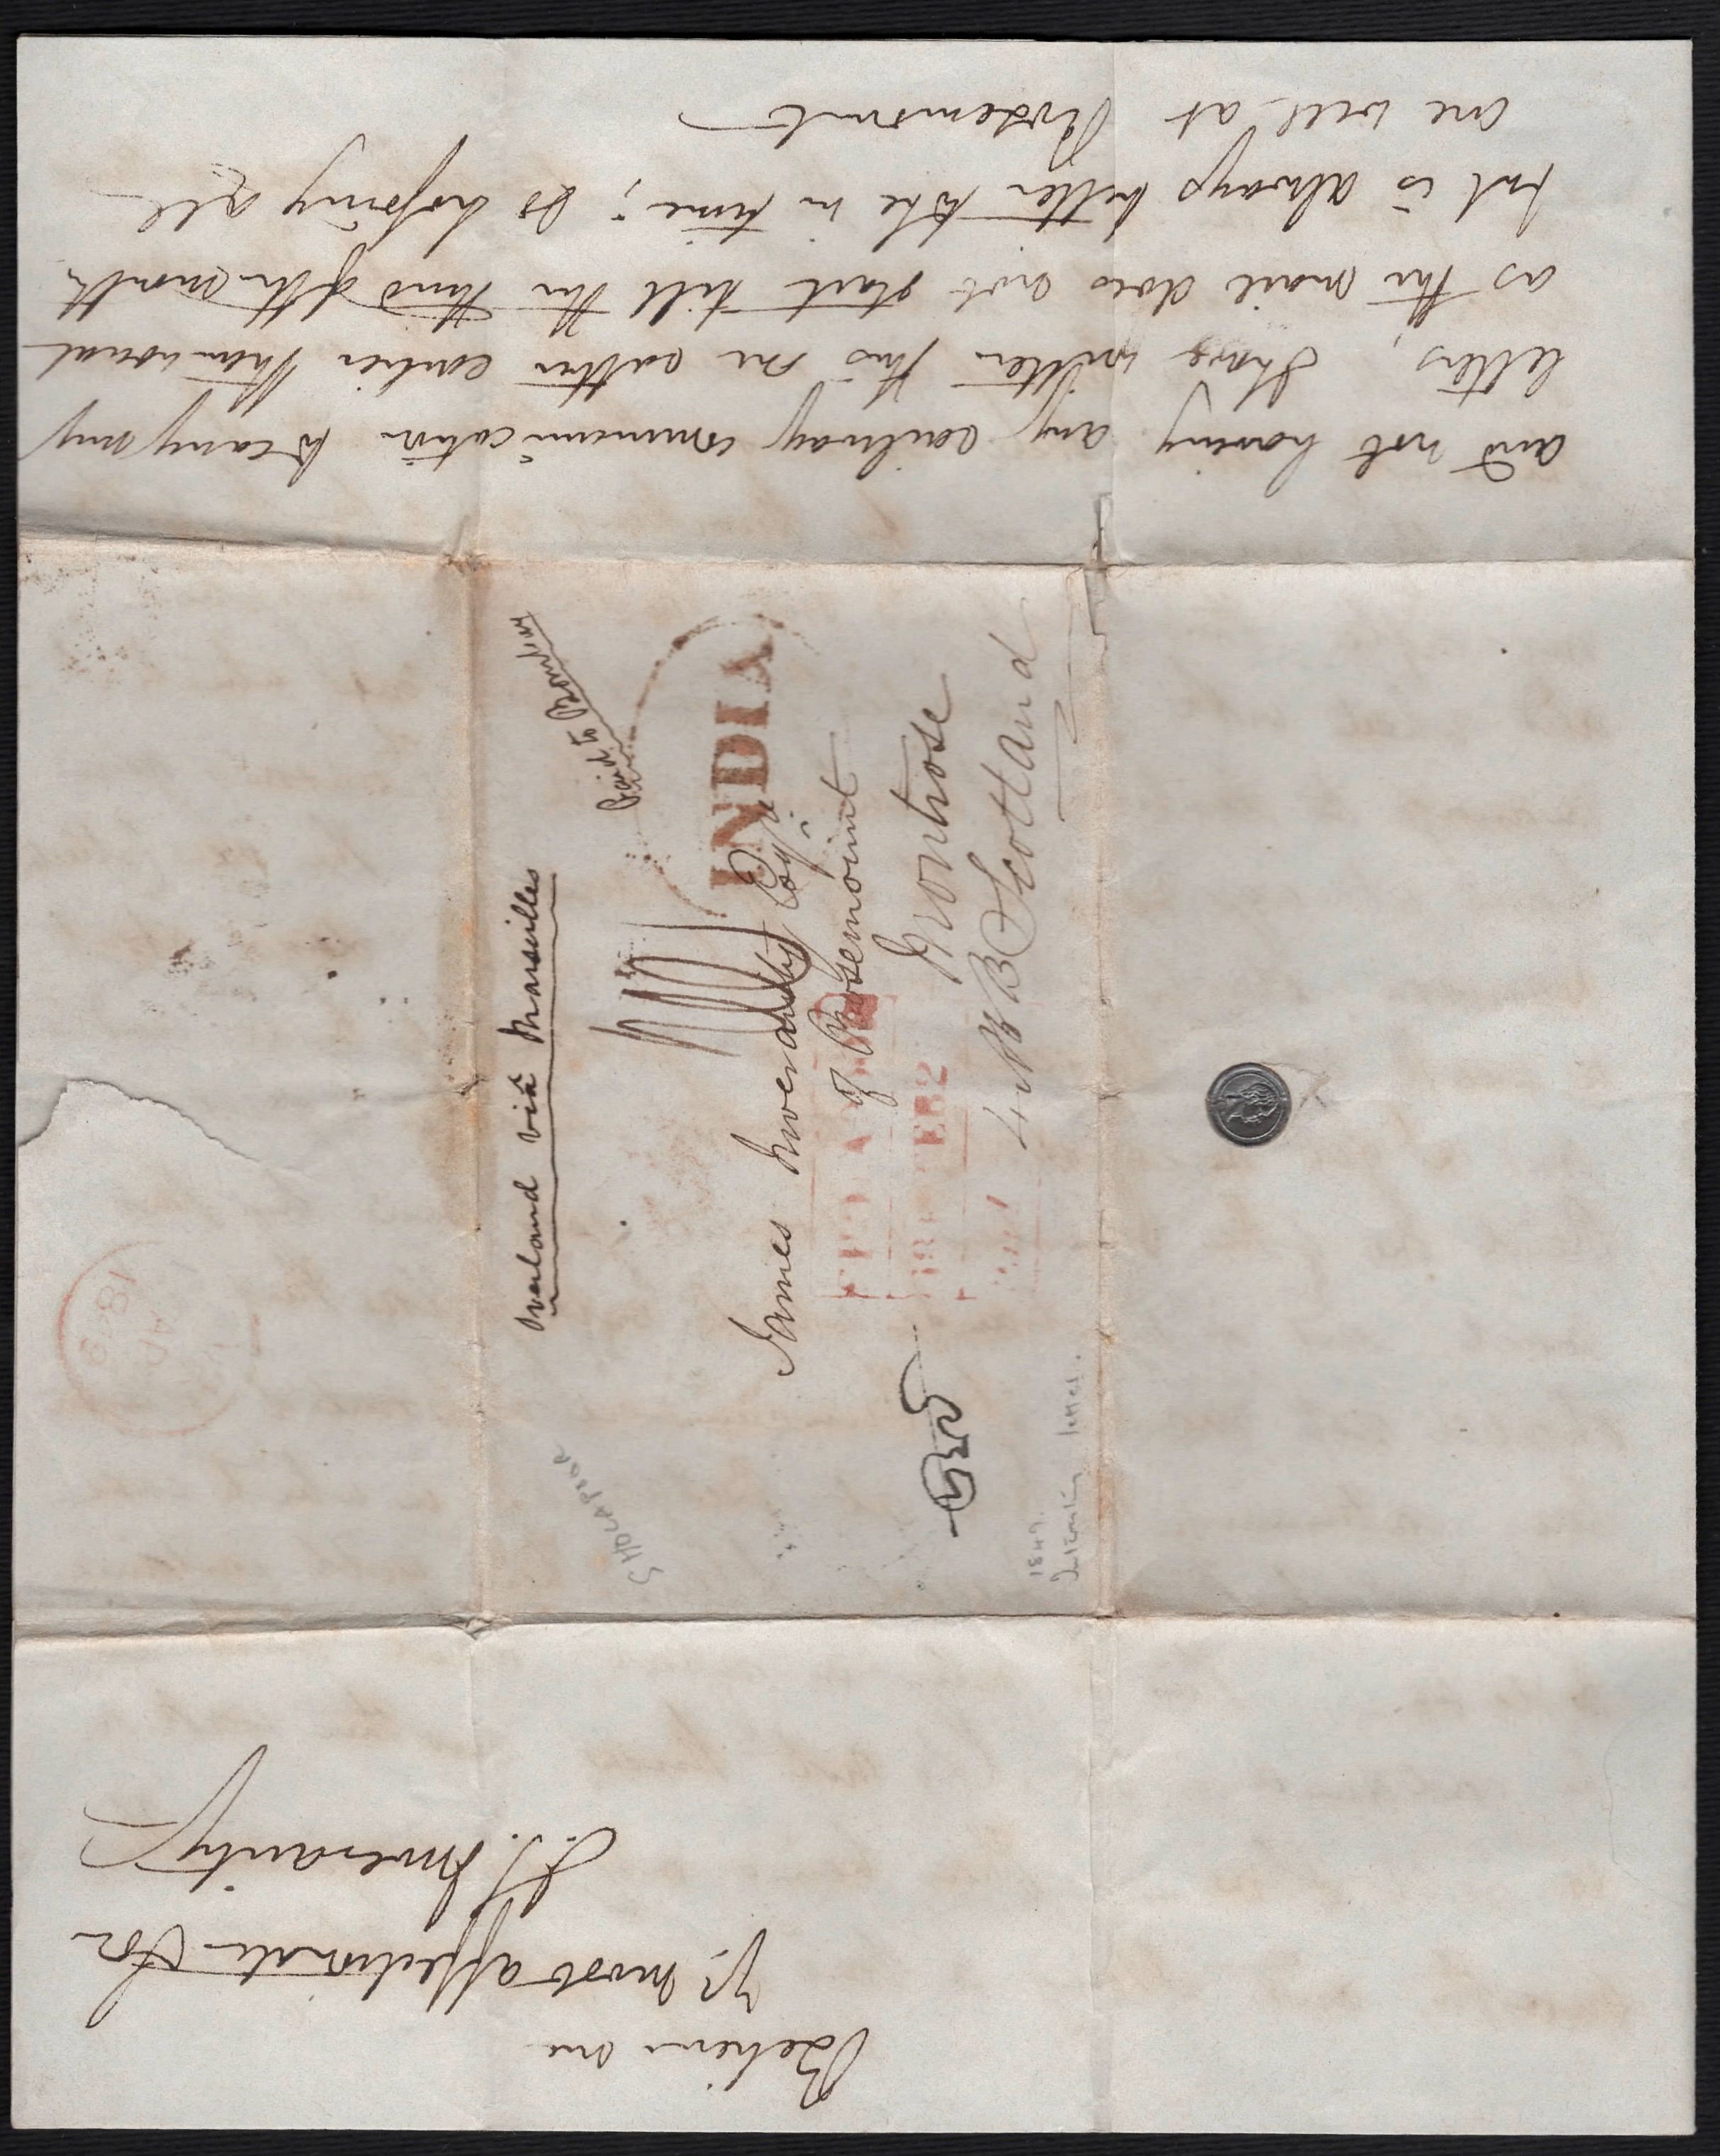 and not having any railway communication to carry my
letters, I have written this one rather earlier than usual
as the mail does not start till the third of the month
but is always better to be in time; so hoping all
are well at Rosemount
Believe me
Yr. most affectionate Son
J. J. Inverarity
Overland viâ Marseilles
Paid to Bombay
INDIA
James Inverarity Esqre.
of Rosemount
Montrose
N B Scotland
SHOLAPOOR
1849.
Interesting letter.